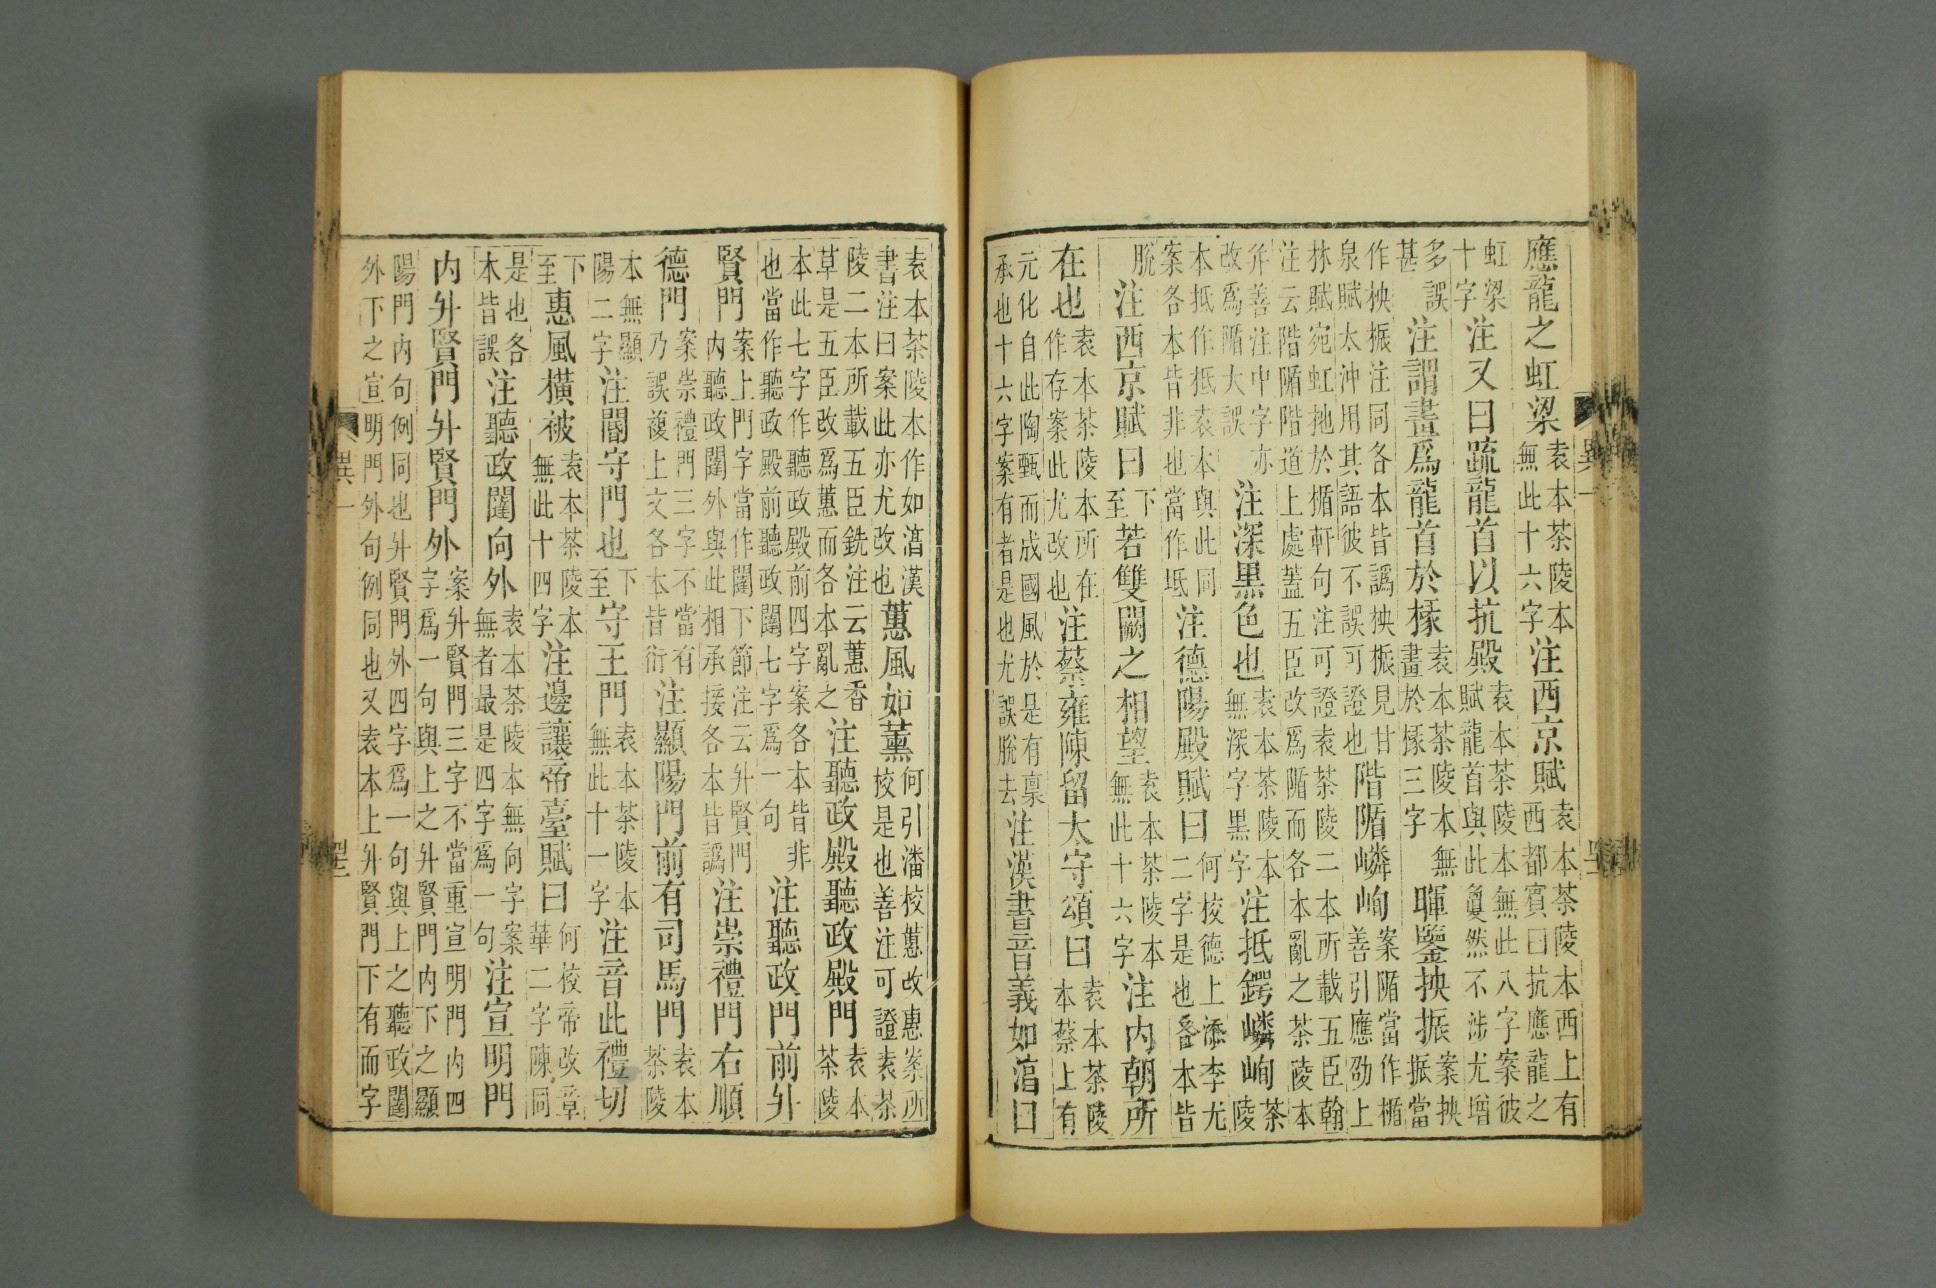 應龍之虹梁袁本茶陵本無此十六字注西京賦袁本茶陵本西上有西都賓曰抗應龍之
虹梁十字注又曰疏龍首以抗殿袁本茶陵本無此八字案彼賦龍首與此夐然不涉尤增
多誤甚注謂畫爲龍首於椽袁本茶陵本無畫於椽三字暉鑒抰振案抰振當
作柍桭注同各本皆譌柍桭見甘泉賦太沖用其語彼不誤可證也階䧘嶙峋案䧘當作楯善引應劭上
林賦宛虹拖於楯軒句注可證袁茶陵二本所載五臣翰注云階䧘階道上處蓋五臣改爲䧘而各本亂之茶陵本
并善注中字亦改爲䧘大誤注深黑色也袁本茶陵本無深字黑字注抵鍔嶙峋茶陵
本抵作抵袁本與此同案各本皆非也當作坻注德陽殿賦曰何校德上添李尤二字是也各本皆
脫注西京賦曰下至若雙闕之相望袁本茶陵本無此十六字注內朝所
在也袁本茶陵本所在作存案此尤改也注蔡雍陳留太守頌曰袁本茶陵本蔡上有
元化自此陶甄而成國風於是有稟承也十六字案有者是也尤誤脫去注漢書音義如淳曰
異一
袁本茶陵本作如淳漢書注曰案此亦尤改也蕙風如薰何引潘校蕙改惠案所校是也善注可證袁茶
陵二本所載五臣銑注云蕙香草是五臣改爲蕙而各本亂之注聽政殿聽政殿門袁本茶陵
本此七字作聽政殿前四字案各本皆非也當作聽政殿前聽政闥七字爲一句注聽政門前升
賢門案上門字當作闥下節注云升賢門內聽政闥外與此相承接各本皆譌注崇禮門右順
德門案崇禮門三字不當有乃誤複上文各本皆衍注顯陽門前有司馬門袁本茶陵
本無顯陽二字注閽守門也下至守王門袁本茶陵本無此十一字注音此禮切
下至惠風橫被袁本茶陵本無此十四字注邊讓帝臺賦曰何校帝改章華二字陳同
是也各本皆誤注聽政闥向外袁本茶陵本無向字案無者最是四字爲一句注宣明門
內升賢門升賢門外案升賢門三字不當重宣明門內四字爲一句與上之升賢門內下之顯
陽門內句例同也升賢門外四字爲一句與上之聽政闥外下之宣明門外句例同也又袁本上升賢門下有而字
異一